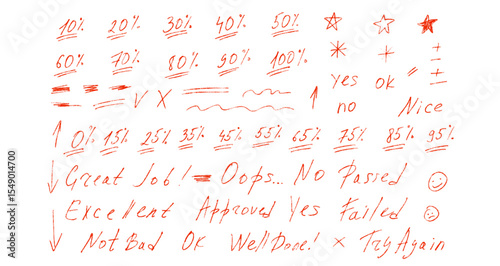 10% 20% 30% 40% 50%
60% 70% 80% 90% 100%
yes ok
no Nice
0% 15% 25% 35% 45% 55% 65% 75% 85% 95%
Great Job! Oops... No Passed
Excellent Approved Yes Failed
Not Bad OK Well Done! × Try Again
Adobe Stock | #1549014700